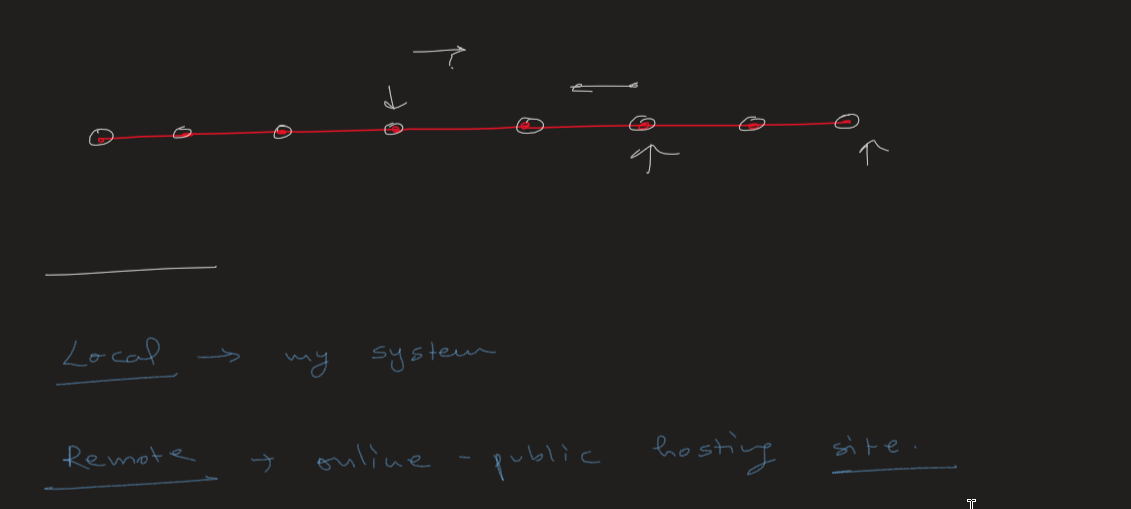 ?
Local → my system
Remote → online - public hosting site.